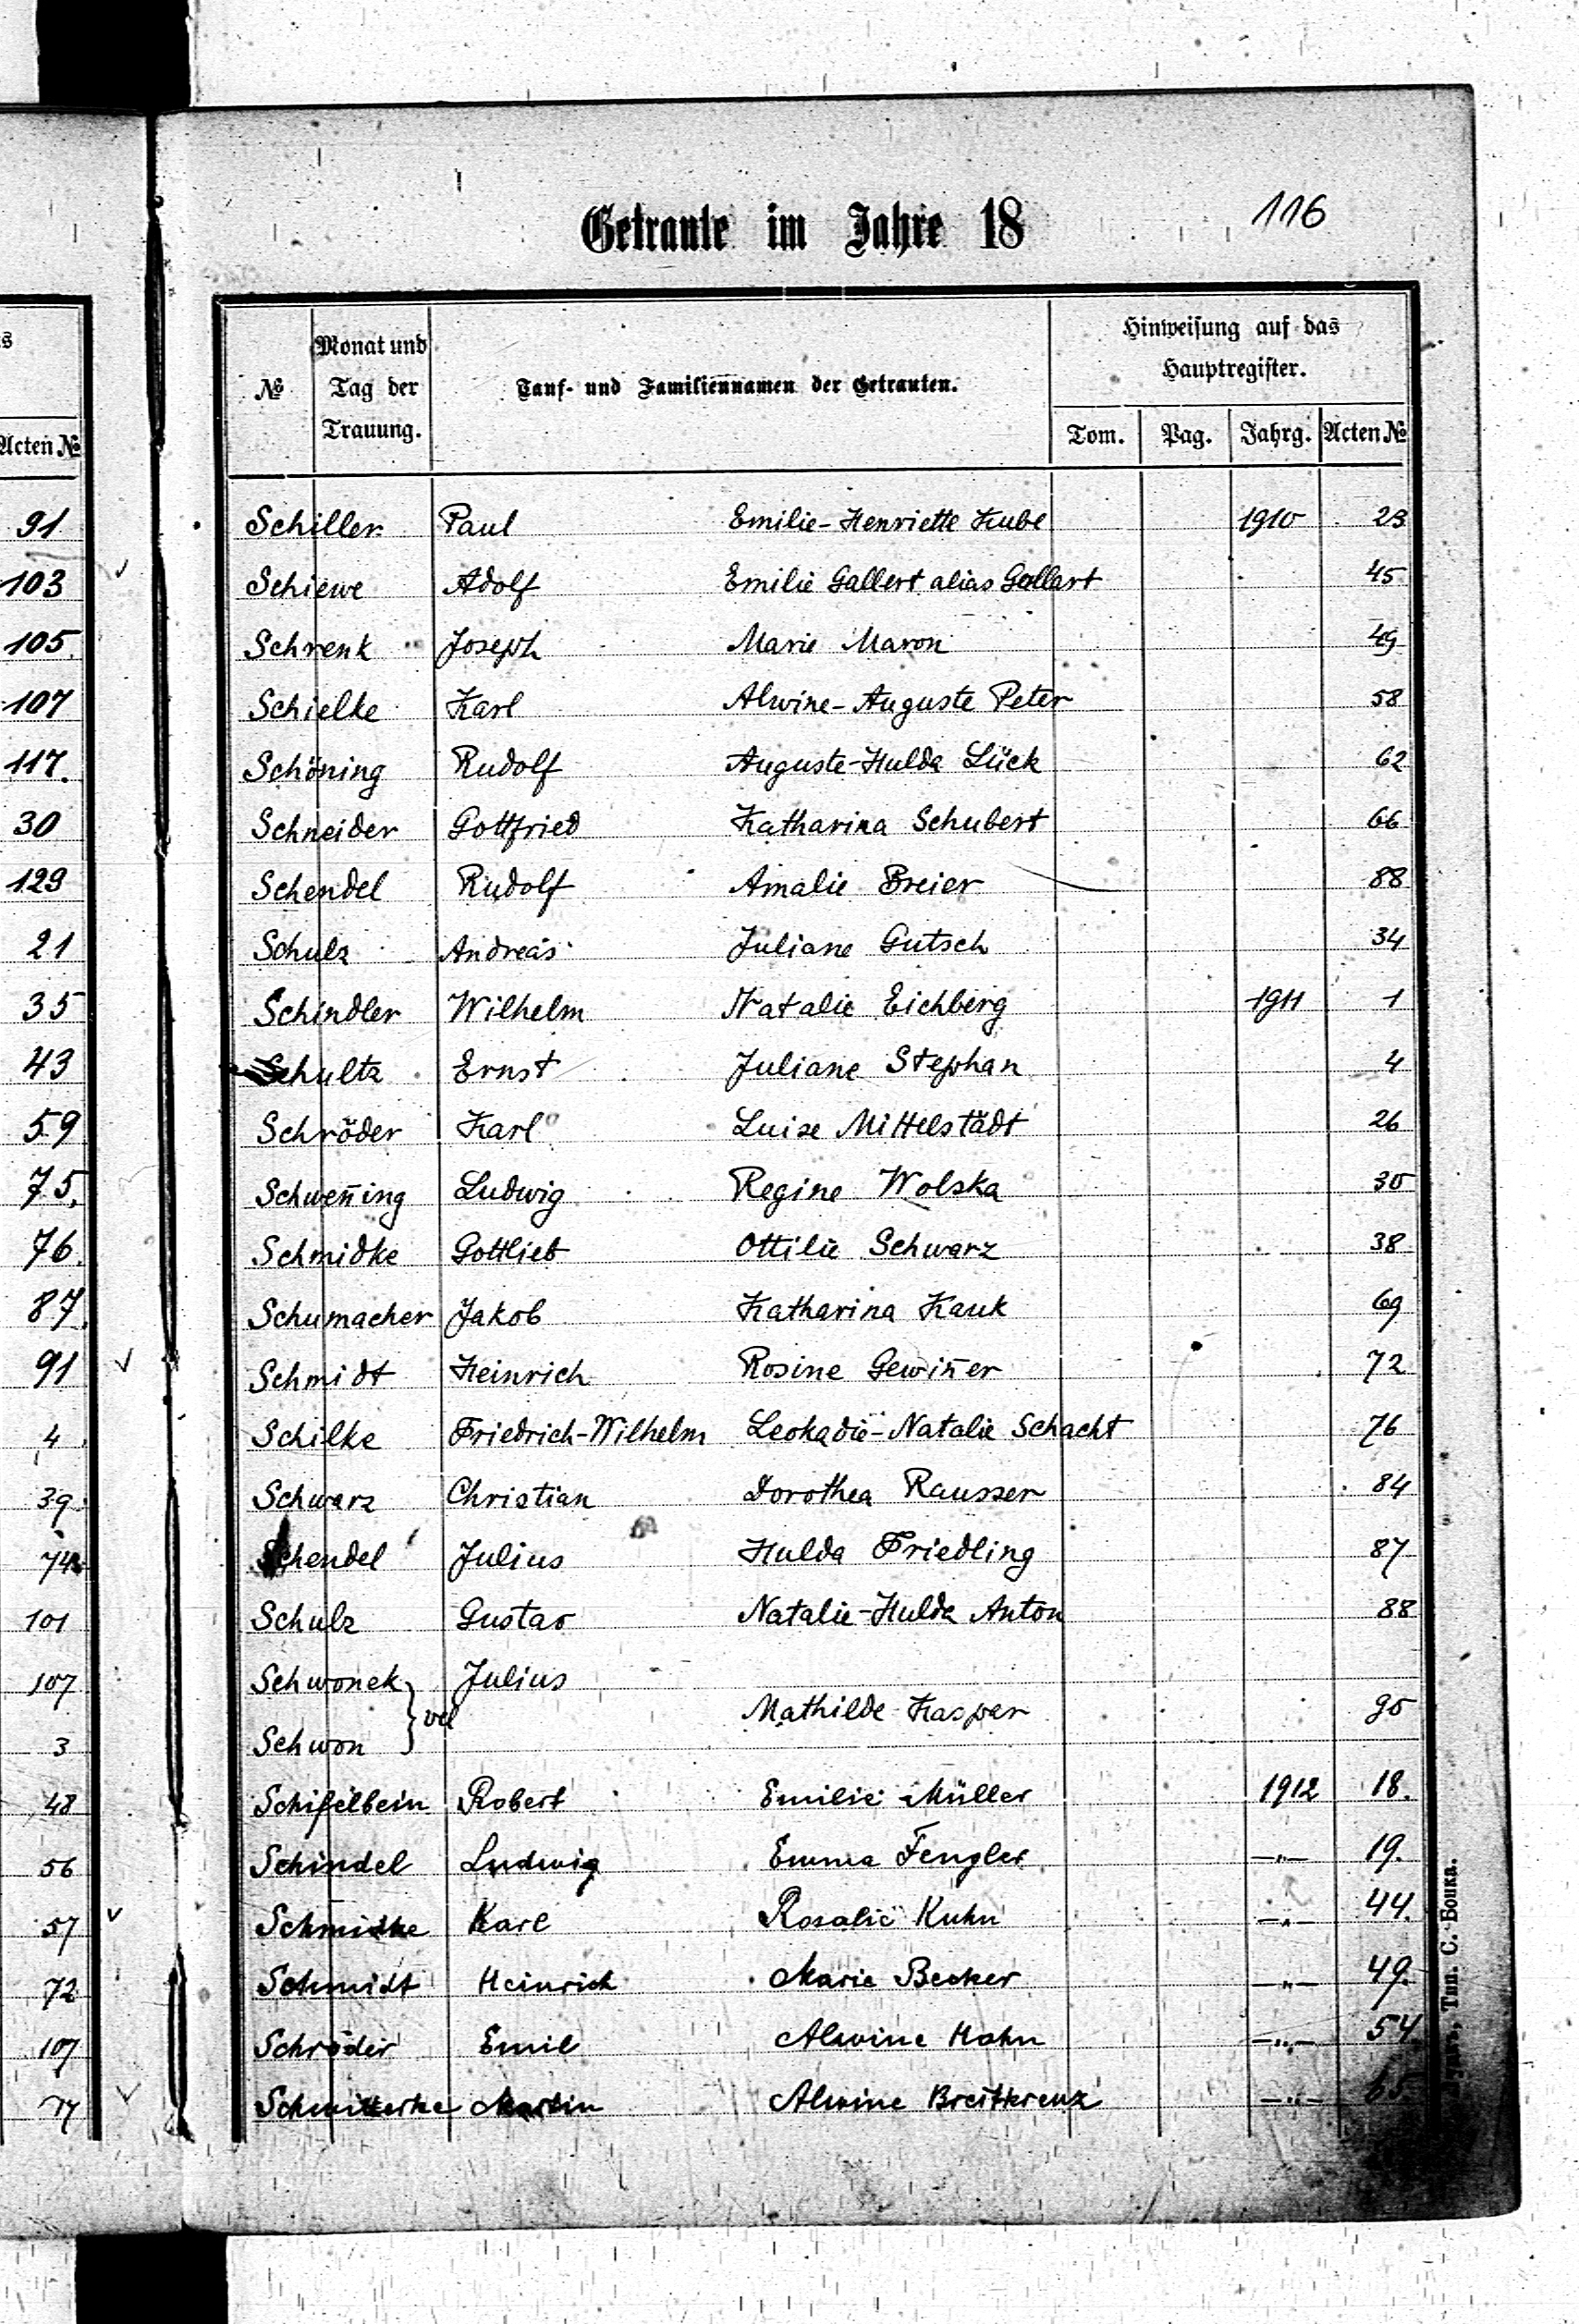 116
Getraute im Jahre 18
№ Monat und Tag der Trauung. Tauf- und Familiennamen der Getrauten. Hinweisung auf das Hauptregister.
Acten № Tom. Pag. Jahrg. Acten №
91 Schiller Paul Emilie-Henriette Kube 1910 23
103 Schiewe Adolf Emilie Gallert alias Gollart 45
105. Schrenk Joseph Marie Maron 49
107 Schielke Karl Alwine-Auguste Peter 58
117. Schöning Rudolf Auguste-Hulda Lück 62
30 Schneider Gottfried Katharina Schubert 66
129 Schendel Rudolf Amalie Breier 88
21 Schulz Andreas Juliane Gutsch 34
35 Schindler Wilhelm Natalie Eichberg 1911 1
43 Schultz Ernst Juliane Stephan 4
59 Schröder Karl Luise Mittelstädt 26
75. Schwen̄ing Ludwig Regine Wolska 30
76. Schmidke Gottlieb Ottilie Schwarz 38
87. Schumacher Jakob Katharina Kauk 69
91 Schmidt Heinrich Rosine Gewin̄er 72
4 Schilke Friedrich-Wilhelm Leokadie-Natalie Schacht 76
39. Schwarz Christian Dorothea Rausser 84
74 Schendel Julius Hulda Friedling 87
101 Schulz Gustav Natalie-Hulda Anton 88
107 Schwonek Julius
vel Mathilde Kasper 90
3 Schwon
48 Schifelbein Robert Emilie Müller 1912 18.
56 Schindel Ludwig Emma Fengler —"— 19.
57 Schmidke Karl Rosalie Kuhn —"— 44.
72 Schmidt Heinrich Marie Becker —"— 49.
107 Schröder Emil Alwine Hahn —"— 54.
Martin Alwine Breitkreuz —"— 65
Тип. С. Бонка.